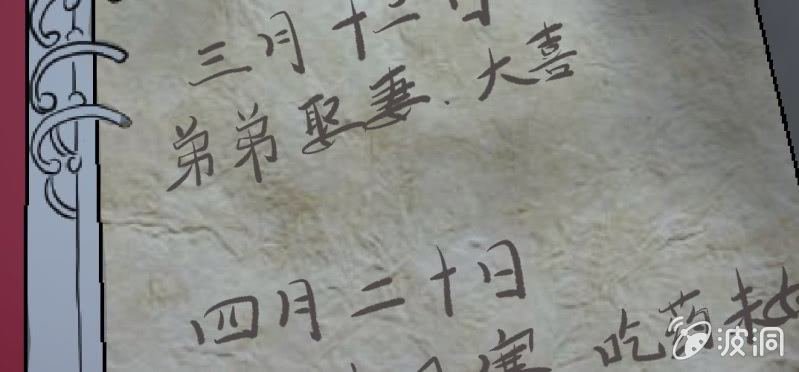 三月十二日
弟弟娶妻.大喜
四月二十日
寒 吃药
波洞